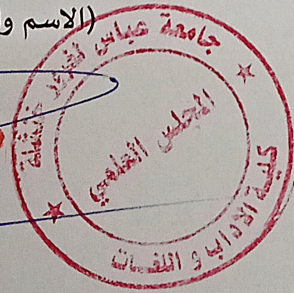 (الاسم وا
جامعة عباس لغرور خنشلة
المجلس العلمي
كلية الآداب و اللغات